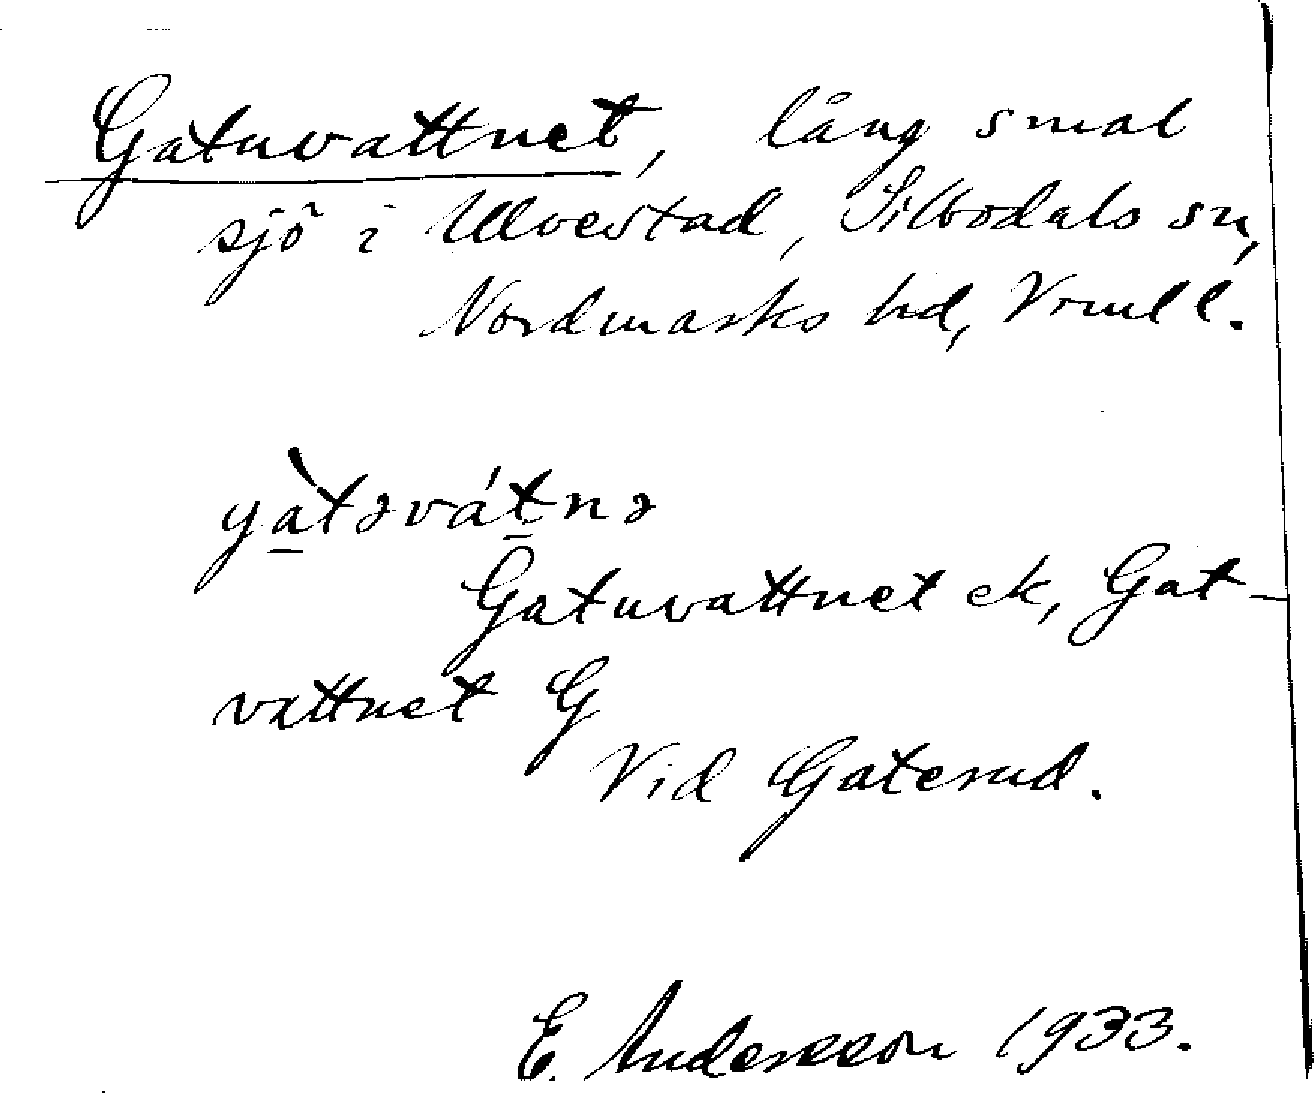 Gatuvattnet, lång smal
sjö i Ulvestad, Silbodals sn,
Nordmarks hd, Vrml l.
gàtəvátnə
Gatuvattnet ek, Gat-
vattnet G
Vid Gaterud.
E. Andersson 1933.